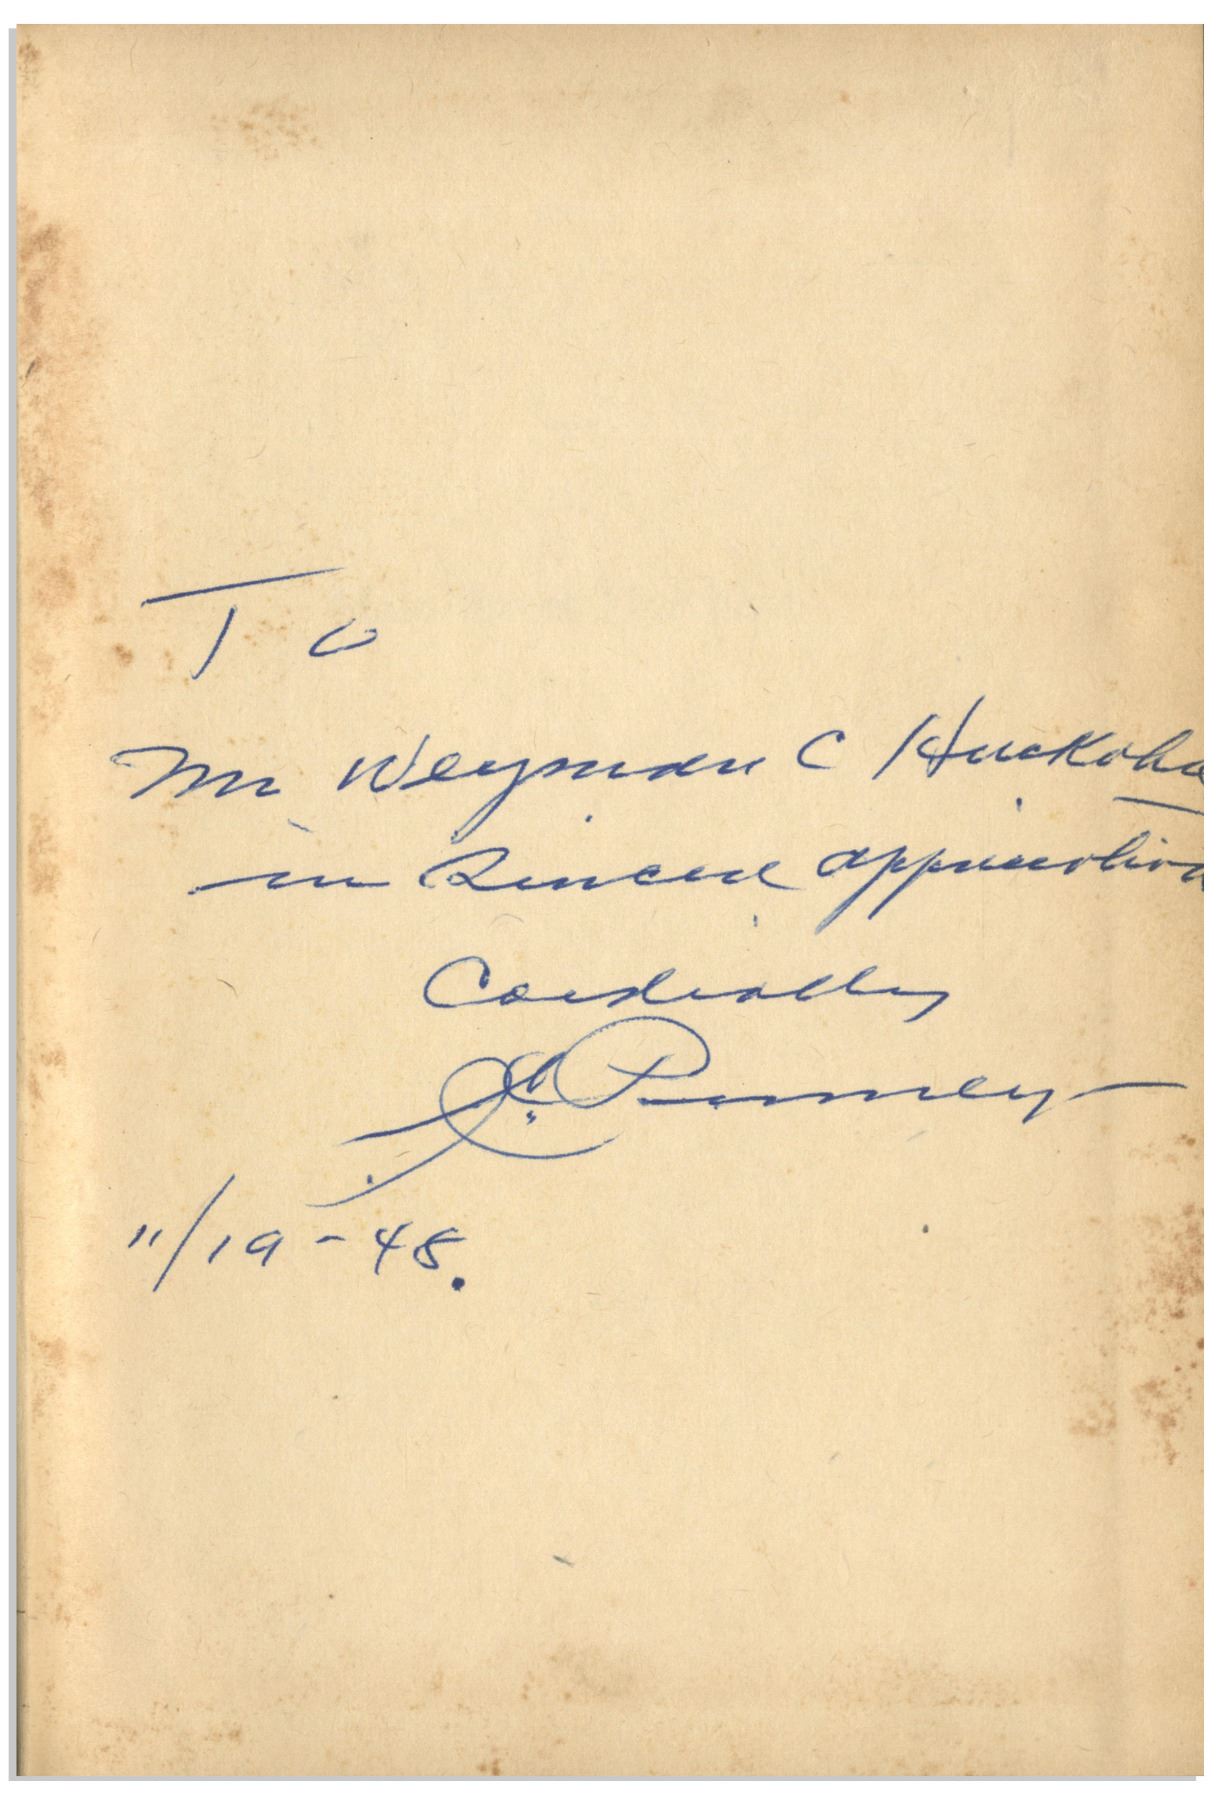 To
Mr Weyman C
in Sincere appreciation
Cordially
JC Penney
11/19-48.